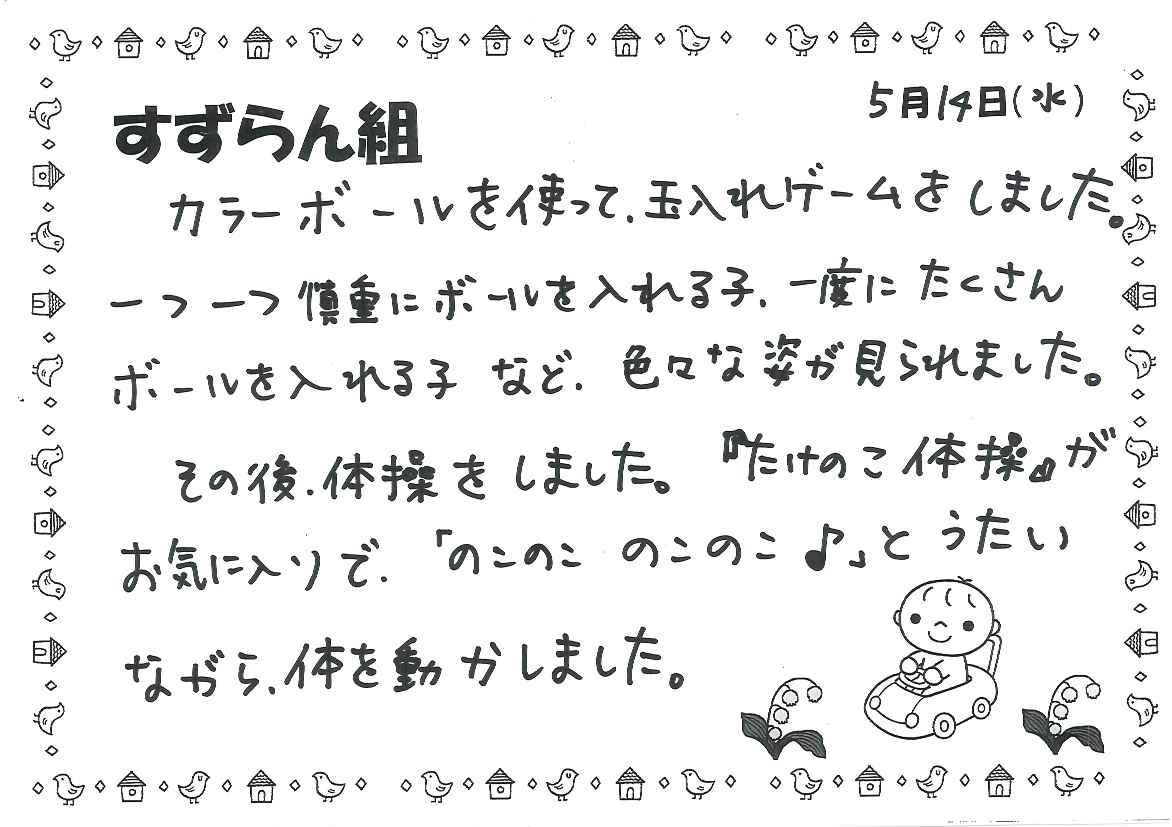 5月14日(水)
すずらん組
カラーボールを使って、玉入れゲームをしました。
一つ一つ慎重にボールを入れる子、一度にたくさん
ボールを入れる子 など、色々な姿が見られました。
その後、体操をしました。『たけのこ体操』が
お気に入りで、「のこのこ のこのこ♪」とうたい
ながら、体を動かしました。